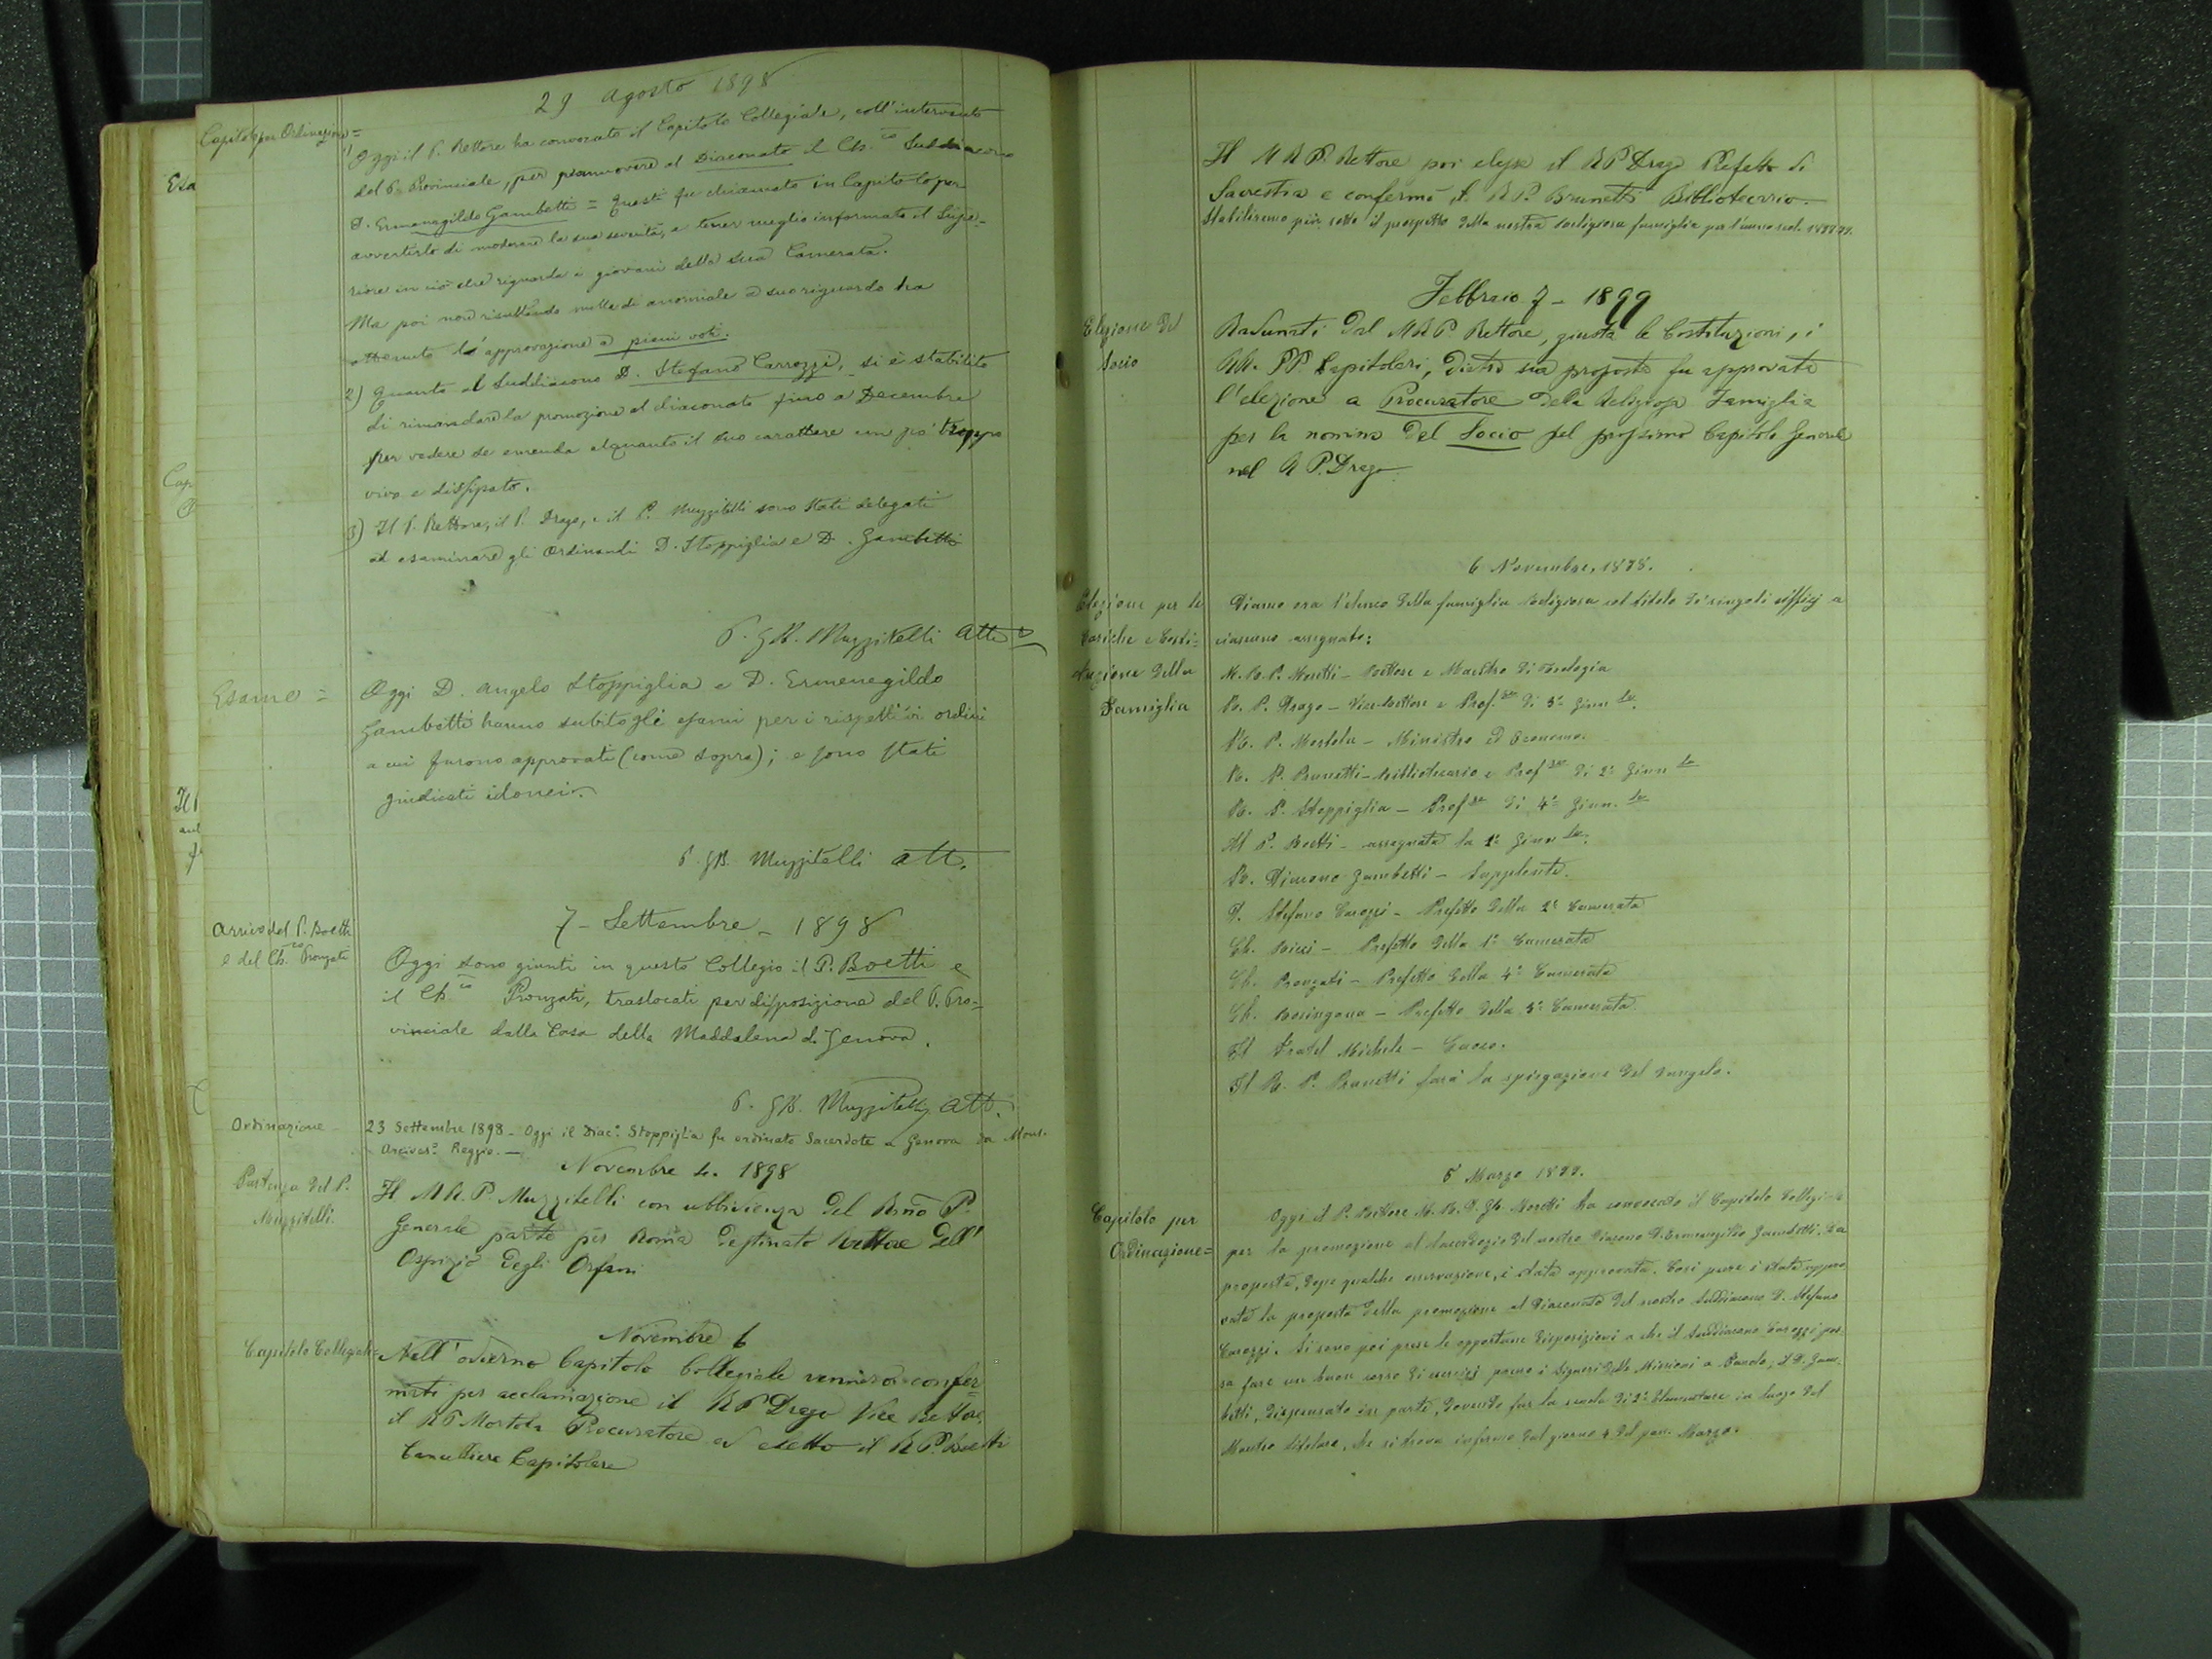 29 Agosto 1898
Capitolo per Ordinazione =
1) Oggi il P. Rettore ha convocato il Capitolo Collegiale, coll'intervento
del P. Provinciale, per promuovere al Diaconato il Ch.co Suddiacono
D. Ermenegildo Gambetti = Questi fu chiamato in Capitolo per
avvertirlo di moderare la sua severità, e tener meglio informato il Supe-
riore in ciò che riguarda i giovani della sua Camerata.
Ma poi non risultando nulla di anormale a suo riguardo ha
ottenuto l'approvazione a pieni voti.
2) Quanto al Suddiacono D. Stefano Carrozzi, si è stabilito
di rimandare la promozione al diaconato fino a Decembre
per vedere se emenda alquanto il suo carattere un po' troppo
vivo e dissipato.
3) Il P. Rettore, il P. Drago, e il P. Muzzitelli sono stati delegati
ad esaminare gli Ordinandi D. Stoppiglia e D. Gambetti
P. GB. Muzzitelli Att.
Esame =
Oggi D. Angelo Stoppiglia e D. Ermenegildo
Gambetti hanno subito gli esami per i rispettivi ordini
a cui furono approvati (come sopra); e sono stati
giudicati idonei.
P. GB. Muzzitelli att.
7 - Settembre - 1898
Arrivo del P. Boetti
e del Ch.co Pronzati
Oggi sono giunti in questo Collegio il P. Boetti e
il Ch.co Pronzati, traslocati per disposizione del P. Pro-
vinciale dalla Casa della Maddalena di Genova.
P. GB. Muzzitelli att.
Ordinazione
23 Settembre 1898 - Oggi il Diac.o Stoppiglia fu ordinato Sacerdote a Genova da Mons.
Arcives.o Reggio. —
Novembre 4. 1898
Partenza del P.
Muzzitelli.
Il M. R. P. Muzzitelli con ubbidienza del Rmo P.
Generale parte per Roma destinato Rettore dell'
Ospizio degli Orfani
Novembre 6
Capitolo Collegiale =
Nell'odierno Capitolo Collegiale vennero confer-
mati per acclamazione il R P Drago Vice Rettore,
il R P Mortola Procuratore ed eletto il R P. Boetti
Cancelliere Capitolare
Il M R P. Rettore poi elesse il R P Drago Prefetto di
Sacrestia e confermò il R P. Brunetti Bibliotecario.
Stabiliremo più sotto il prospetto della nostra religiosa famiglia per l'anno scol. 1898 99.
Febbraio 7 - 1899
Elezione del
Socio
Radunati dal M R P. Rettore, giusta le Costituzioni, i
RR. PP Capitolari, dietro sua proposta fu approvata
l'elezione a Procuratore della Religiosa Famiglia
per la nomina del Socio pel prossimo Capitolo Generale
nel R P. Drago.
6 Novembre, 1898.
Elezione per le
Cariche e Costi-
tuzione della
Famiglia
Diamo ora l'elenco della famiglia religiosa col titolo di singoli uffici a
ciascuno assegnato:
M. R. P. Moretti - Rettore e Maestro di Teologia
R. P. Drago - Vice-Rettore e Prof.re di 3a Ginn.le
R. P. Mortola - Ministro ed Economo.
R. P. Brunetti - Bibliotecario e Prof.re di 2a Ginn.le
R. P. Stoppiglia - Prof.re di 4a Ginn.le
Il P. Boetti - assegnata la 1a Ginn.le
R. Diacono Gambetti - Supplente.
D. Stefano Carozzi - Prefetto della 2a Camerata
Ch. Ricci - Prefetto della 1a Camerata
Ch. Pronzati - Prefetto della 4a Camerata
Ch. Rosingana - Prefetto della 3a Camerata
Il Fratel Michele - Cuoco.
Il R. P. Brunetti farà la spiegazione del Vangelo.
5 Marzo 1899.
Capitolo per
Ordinazione =
Oggi il P. Rettore M. R. P. Gb. Moretti ha convocato il Capitolo Collegiale
per la promozione al Sacerdozio del nostro Diacono D. Ermenegildo Gambetti. La
proposta, dopo qualche osservazione, è stata approvata. Così pure è stata appro
vata la proposta della promozione al Diaconato del nostro Suddiacono D. Stefano
Carozzi. Si sono poi prese le opportune disposizioni a che il Suddiacono Carozzi pos-
sa fare un buon corso di esercizi presso i Signori della Missione a Fassolo; il D. Gam-
betti, dispensato in parte, dovendo far la scuola di 2a Elementare in luogo del
Maestro titolare, che si trova infermo dal giorno 4 del pres. Marzo.